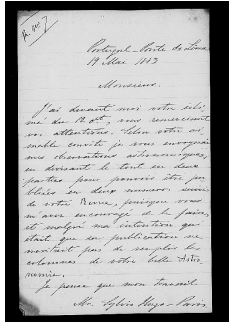 Portugal - Ponte do Lima
19 Mai 1883
Monsieur.
J'ai devant moi votre esti-
mé du 12 ct, vous remerciant
vos attentions. Selon votre ai-
mable convite je vous envoyais
mes observations astronomiques,
en divisant le tout en deux
parties pour pouvoir être pu-
bliées en deux numeros
de votre Revue, puisque vous
m'avez encouragé à le faire,
et malgré ma intention qui
était que sa publication ne
montrait pas de remplir les
colomnes de votre belle Astro-
nomie.
Je pense que mon travail
Mr.